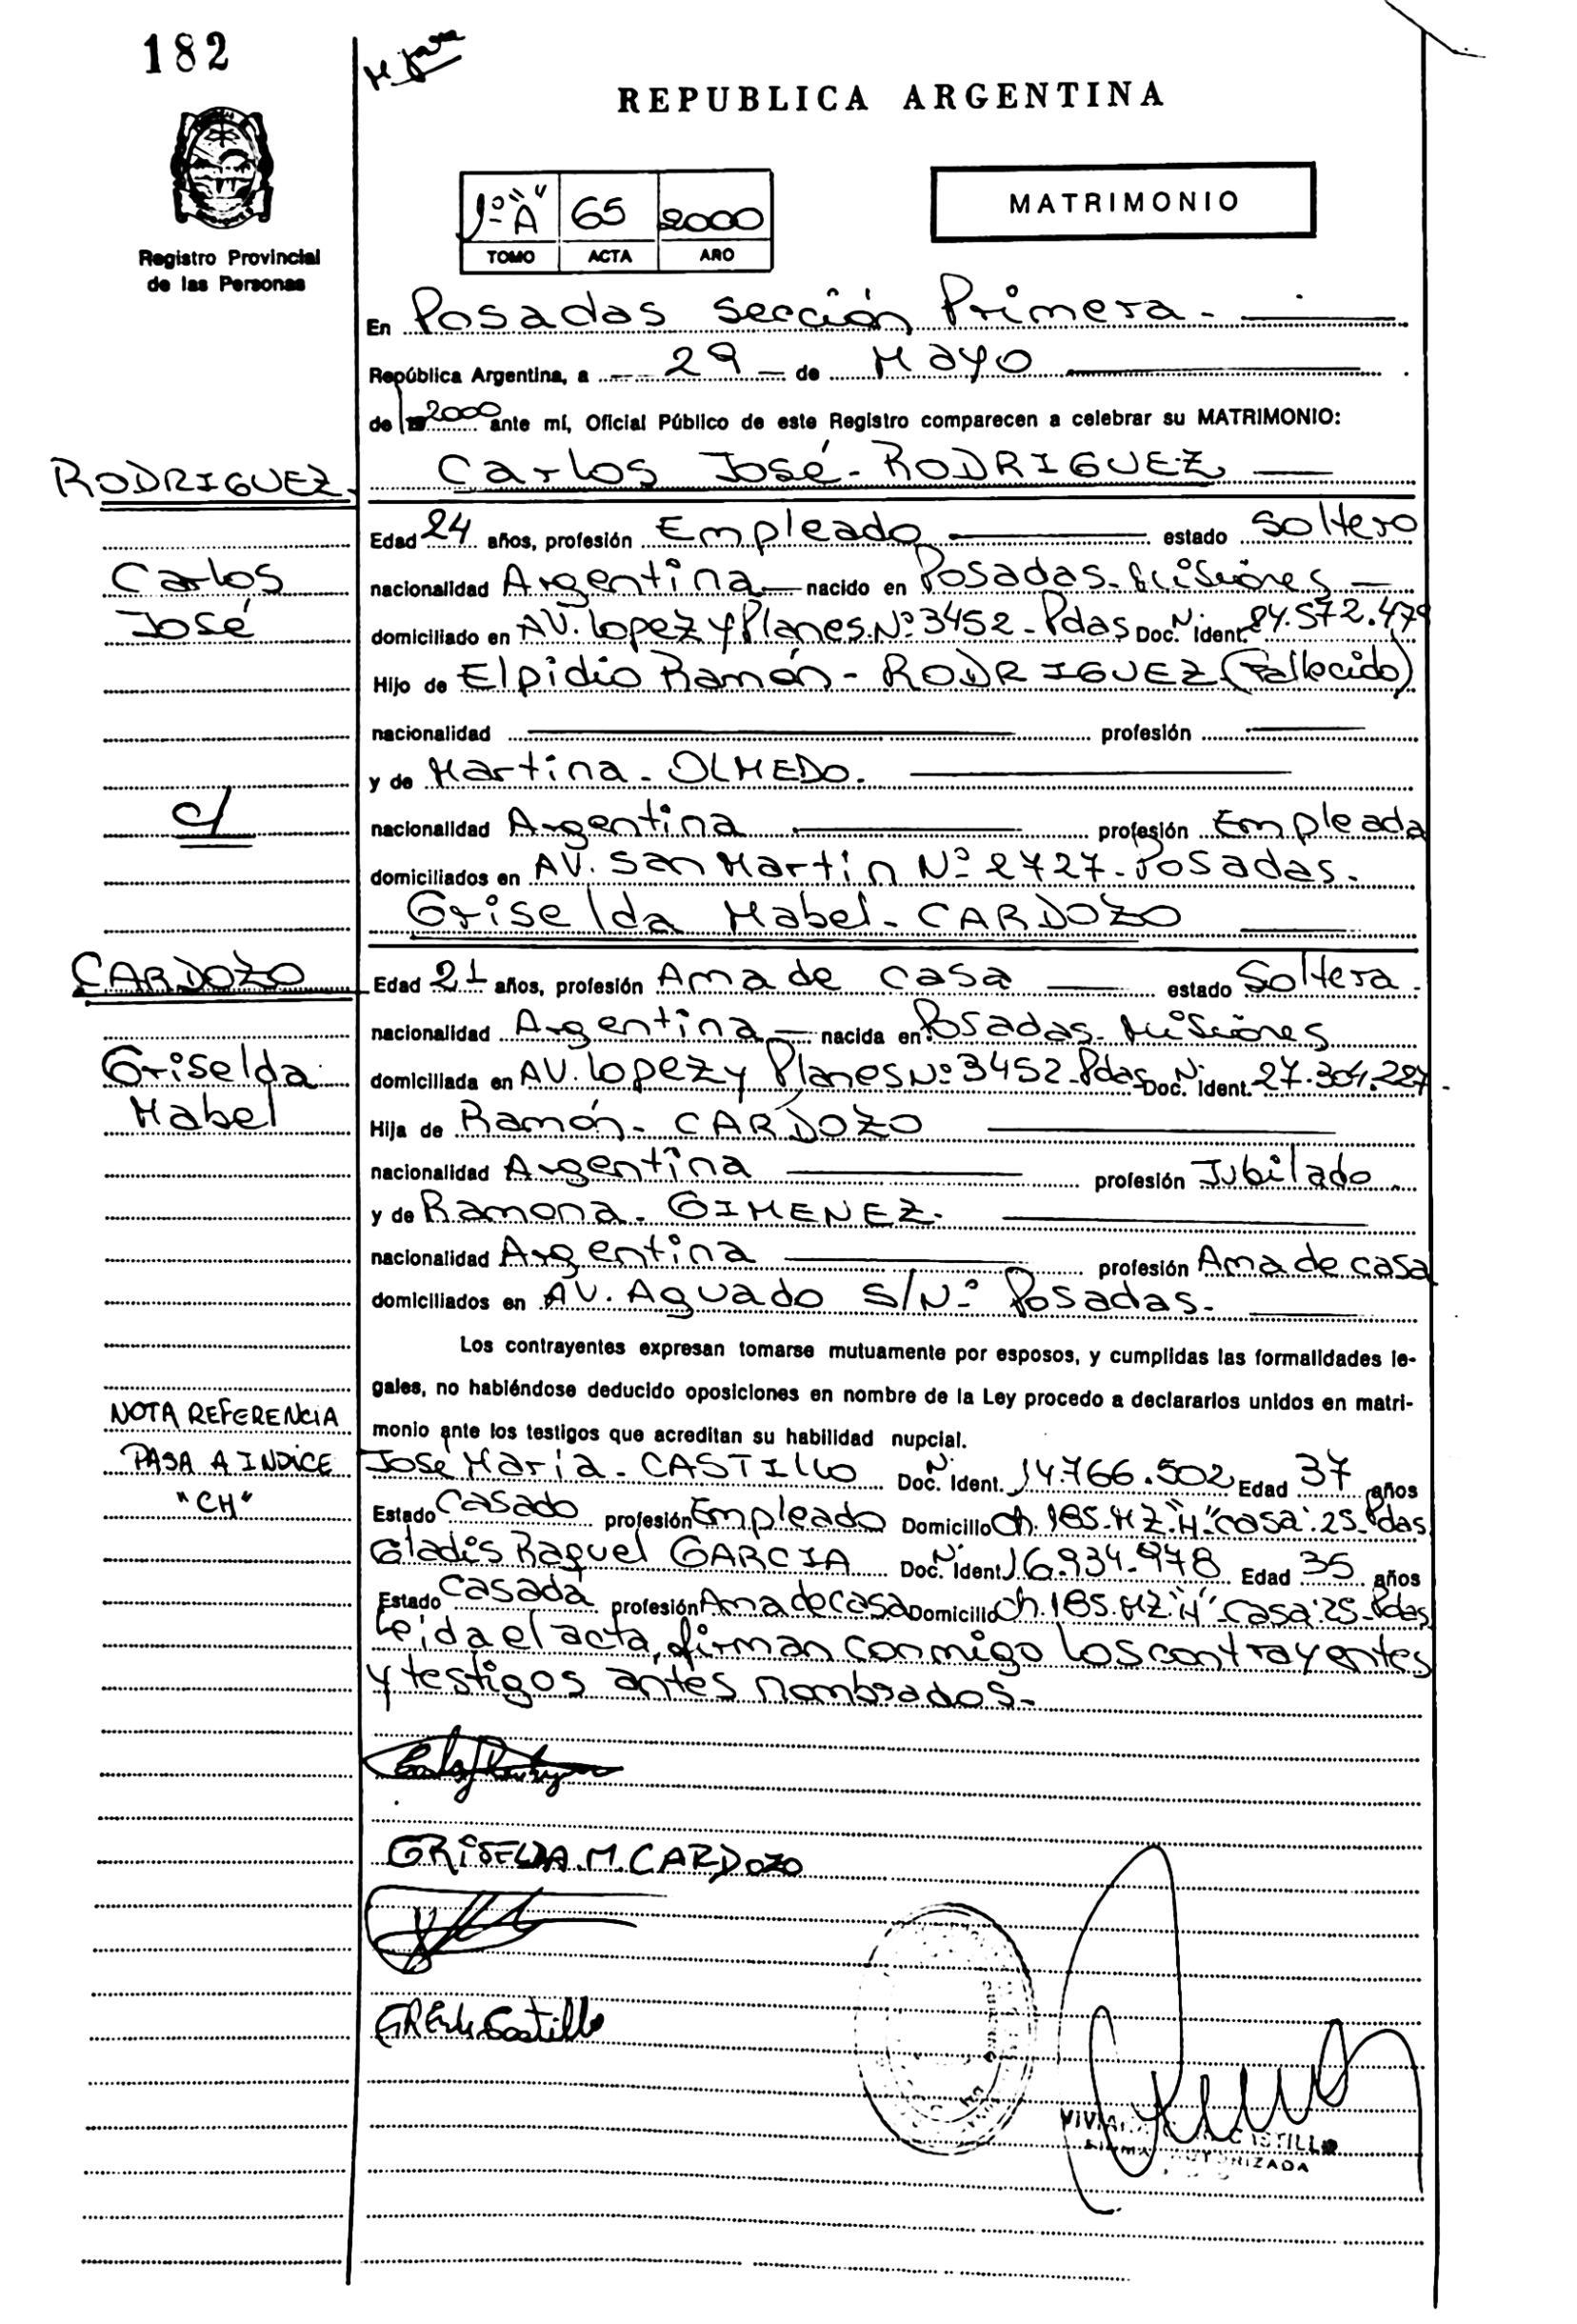 182
REPUBLICA ARGENTINA
Registro Provincial
de las Personas
1º "A" 65 2000
TOMO ACTA AÑO
MATRIMONIO
En Posadas sección Primera.
República Argentina, a 29 de Mayo
de 2000 ante mí, Oficial Público de este Registro comparecen a celebrar su MATRIMONIO:
RODRIGUEZ.
Carlos José - RODRIGUEZ
Edad 24 años, profesión Empleado estado Soltero
Carlos
nacionalidad Argentina nacido en Posadas - Misiones
José
domiciliado en AV. Lopez y Planes Nº 3452 - Pdas Doc. N. ident. 24.572.479
Hijo de Elpidio Ramón - RODRIGUEZ (Fallecido)
nacionalidad profesión
y de Martina - OLMEDO.
c/
nacionalidad Argentina profesión Empleada
domiciliados en AV. San Martín Nº 2727 - Posadas.
Griselda Mabel - CARDOZO
CARDOZO
Edad 21 años, profesión Ama de casa estado Soltera.
nacionalidad Argentina nacida en Posadas - Misiones
Griselda
domiciliada en AV. Lopez y Planes Nº 3452 - Pdas Doc. N. ident. 27.304.227
Mabel
Hija de Ramón - CARDOZO
nacionalidad Argentina profesión Jubilado.
y de Ramona - GIMENEZ.
nacionalidad Argentina profesión Ama de casa
domiciliados en AV. Aguado S/Nº Posadas.
Los contrayentes expresan tomarse mutuamente por esposos, y cumplidas las formalidades le-
gales, no habiéndose deducido oposiciones en nombre de la Ley procedo a declararlos unidos en matri-
monio ante los testigos que acreditan su habilidad nupcial.
NOTA REFERENCIA
PASA A INDICE
"CH"
Jose María - CASTILLO Doc. N. Ident. 14.766.502 Edad 37 años
Estado Casado profesión Empleado Domicilio Ch. 185. MZ. "H" casa: 25 - Pdas
Gladis Raquel GARCIA Doc. N. ident. 16.934.978 Edad 35 años
Estado Casada profesión Ama de casa Domicilio Ch. 185. MZ "H" - casa: 25 - Pdas
Leida el acta, firman conmigo los contrayentes
y testigos antes nombrados.
GRISELDA.M.CARDOZO
Castillo
CASTILLO
FIRMA AUTORIZADA